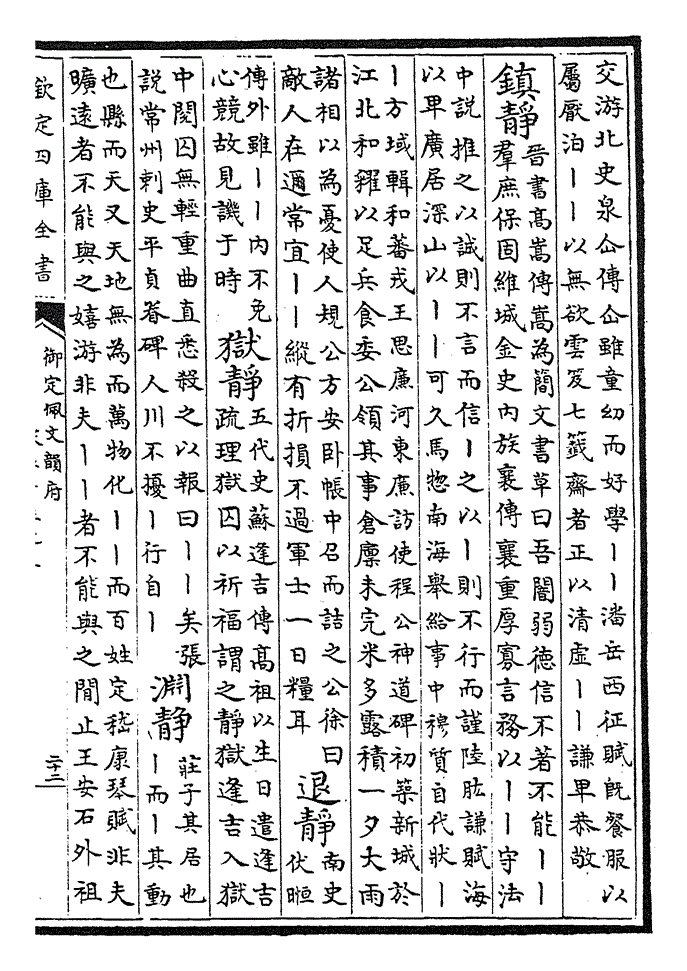 交游北史泉仚傳仚雖童幼而好學丨丨潘岳西征賦既餐服以
屬厭泊丨丨以無欲雲笈七籤齋者正以清虛丨丨謙卑恭敬
鎮靜晉書高嵩傳嵩為簡文書草曰吾闇弱徳信不著不能丨丨
羣庶保固維城金史内族襄傳襄重厚寡言務以丨丨守法
中説推之以誠則不言而信丨之以丨則不行而謹陸肱謙賦海
以卑廣居深山以丨丨可久馬惣南海舉給事中穆質自代狀丨
丨方域輯和蕃戎王思廉河東廉訪使程公神道碑初築新城於
江北和糴以足兵食委公領其事倉廩未完米多露積一夕大雨
諸相以為憂使人規公方安卧帳中召而詰之公徐曰
敵人在邇常宜丨丨縱有折損不過軍士一日糧耳
退靜南史
伏暅
傳外雖丨丨内不免
心競故見譏于時
獄靜五代史蘇逢吉傳髙祖以生日遣逢吉
疏理獄囚以祈福謂之靜獄逢吉入獄
中閱囚無輕重曲直悉殺之以報曰丨丨矣張
説常州刺史平貞眘碑人川不擾丨行自丨
淵靜莊子其居也
丨而丨其動
也縣而天又天地無為而萬物化丨丨而百姓定嵇康琴賦非夫
曠遠者不能與之嬉游非夫丨丨者不能與之閒止王安石外祖
欽定四庫全書
御定佩文韻府
二十二